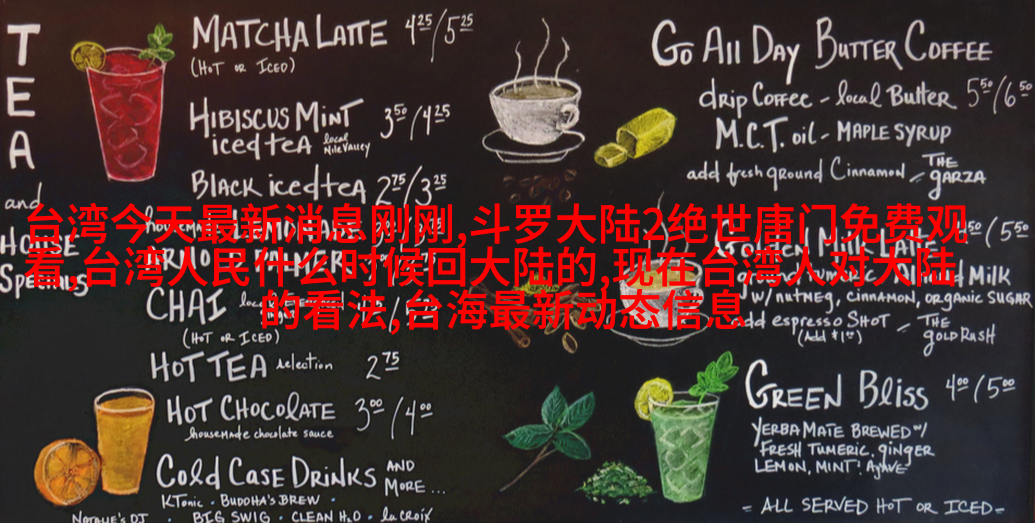 TEA
and
HOUSE
Specials
MATCHA LATTE 4.25/5.25
(HOT OR ICED)
HIBISCUS MINT
iced tea local Nile Valley 3.50/4.25
BLACK iced teA 2.75/3.25
台湾今天最新消息刚刚,斗罗大陆2绝世唐门免费观
看,台湾人民什么时候回大陆的,现在台湾人对大陆
的看法,台海最新动态信息
CHAI
(HOT OR ICED)
HOT TEA selection 2.75
HOT CHOCOLATE 3.00/4.00
housemade chocolate sauce
Cold CASE DRINKS AND MORE...
KTonic · BUDDHA'S BREW ·
BIG SWIG · CLEAN H2O · la CROIX
GO ALL DAY BUTTER COFFEE
drip COFFEE - local Butter 5.50/6.50
M.C.T. oil - MAPLE SYRUP
add fresh ground Cinnamon - THE GARZA
W/ NUTMEG, CINNAMON, ORGANIC SUGAR
add espresso SHOT - THE GOLD RUSH
(Add $1.00)
GREEN Bliss 4.00/5.00
YERBA MATE BREWED W/
FRESH TUMERIC, GINGER
LEMON, MINT! AGAVE
- ALL SERVED HOT OR ICED -